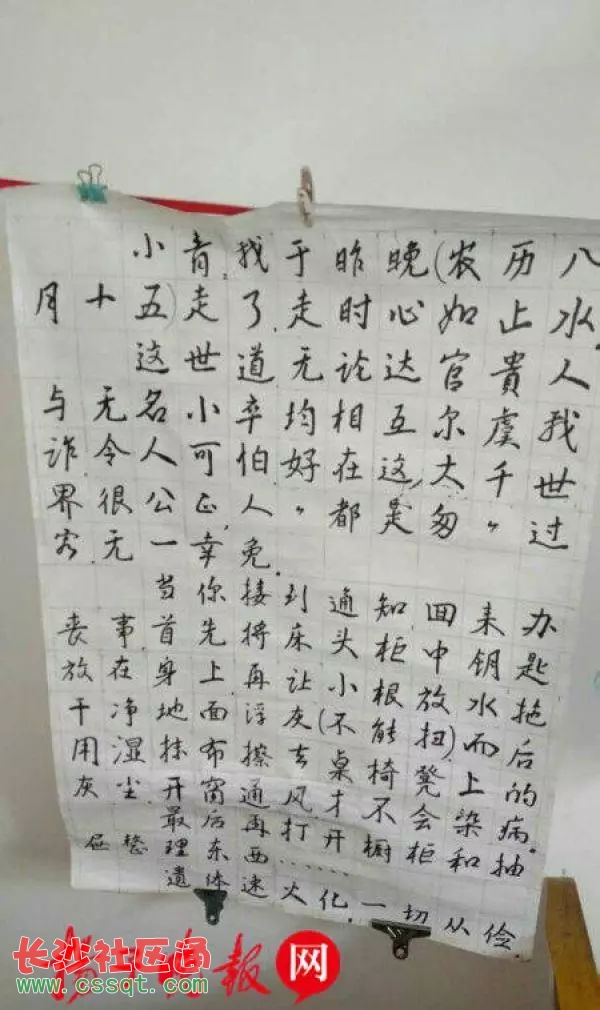 小青,我于昨晚(农历八
月十五)走了,走时心如止水.
这世道无论达官贵人
与无名小卒均相互尔虞我
诈.令人可怕,好在这大千世
界很公正,人〃都是匆〃过
客.无一幸免.
当你接到通知回来办
丧事首先将床头柜中钥匙
放在身上再让小根放水拖
干净地面浮灰(不能扭)而后
用湿抹布擦去桌椅凳上的
灰尘.开窗通风才不会染病.
最后再打开橱柜和抽
屉整理东西……
遗体速火化.一切从俭.
扬子晚报网
长沙社区通
www.cssqt.com